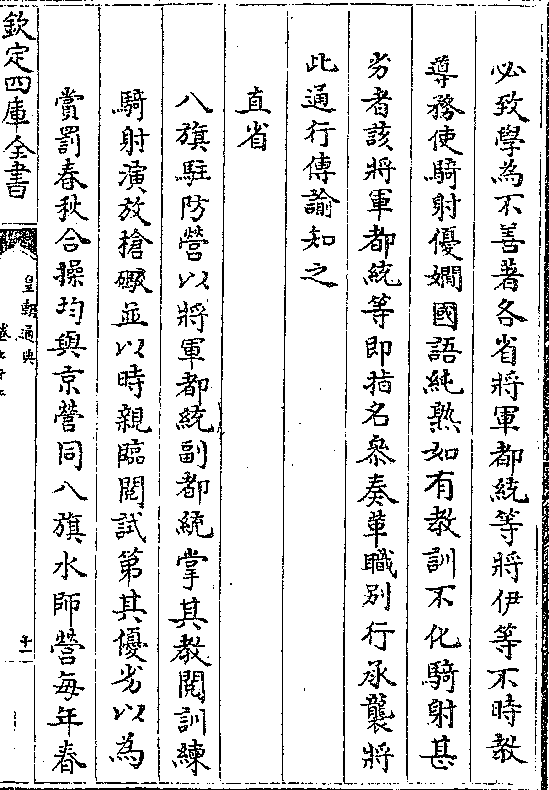 必致學為不善著各省將軍都統等將伊等不時教
導務使騎射優嫺國語純熟如有教訓不化騎射甚
劣者該將軍都統等即指名叅奏革職別行承襲將
此通行傳諭知之
直省
八旗駐防營以將軍都統副都統掌其教閱訓練
騎射演放搶礮並以時親臨閱試第其優劣以為
賞罰春秋合操均與京營同八旗水師營每年春
欽定四庫全書
皇朝通典